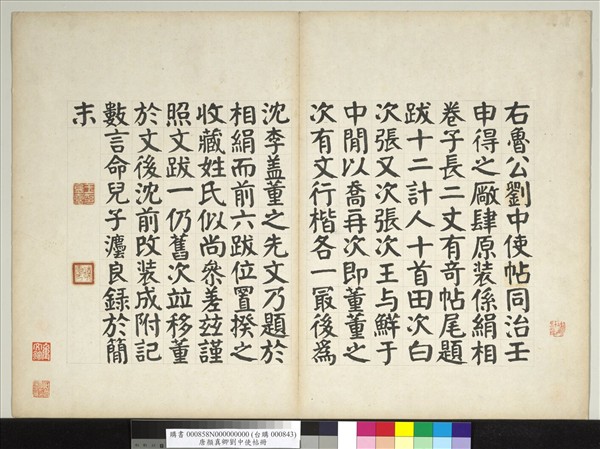 右魯公劉中使帖同治壬
申得之厰肆原装係絹相
卷子長二丈有奇帖尾題
跋十二計人十首田次白
次張又次張次王与鮮于
中閒以喬再次即董董之
次有文行楷各一冣後爲
沈李盖董之先文乃題於
相絹而前六跋位置揆之
收藏姓氏似尚叅差玆謹
照文跋一仍舊次竝移董
於文後沈前改装成附記
數言命兒子瀍良録於簡
末
購書 000858N000000000 (台購 000843)
唐顏真卿劉中使帖冊